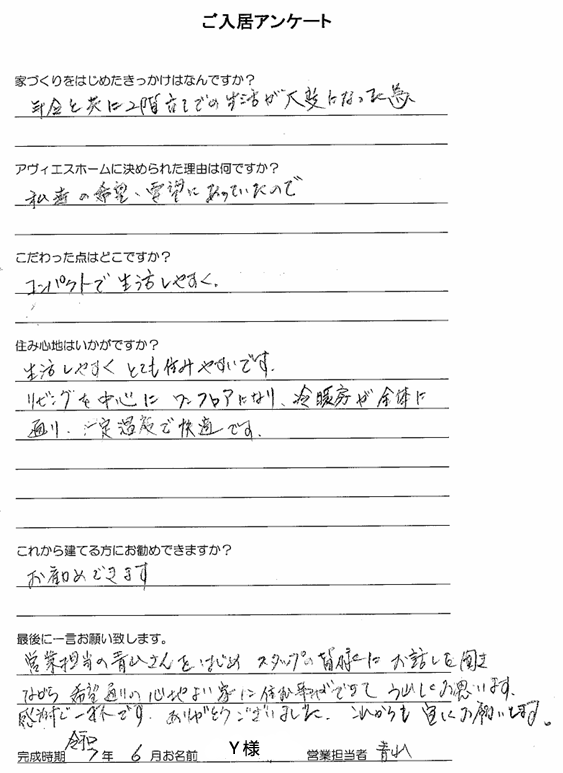 ご入居アンケート
家づくりをはじめたきっかけはなんですか?
年金と共に2階立ての生活が大変になった為
アヴィエスホームに決められた理由は何ですか?
私達の希望、要望にあっていたので
こだわった点はどこですか?
コンパクトで生活しやすく。
住み心地はいかがですか?
生活しやすくとても住みやすいです。
リビングを中心にワンフロアになり、冷暖房が全体に
通り、一定温度で快適です。
これから建てる方にお勧めできますか?
お勧めできます
最後に一言お願い致します。
営業担当の青山さんをはじめスタッフの皆様にお話しを聞き
ながら希望通りの心地よい家に住む事ができてうれしく思います。
感謝で一杯です。ありがとうございました。これからも宜しくお願いします。
完成時期 令和7年6月 お名前 Y様 営業担当者 青山